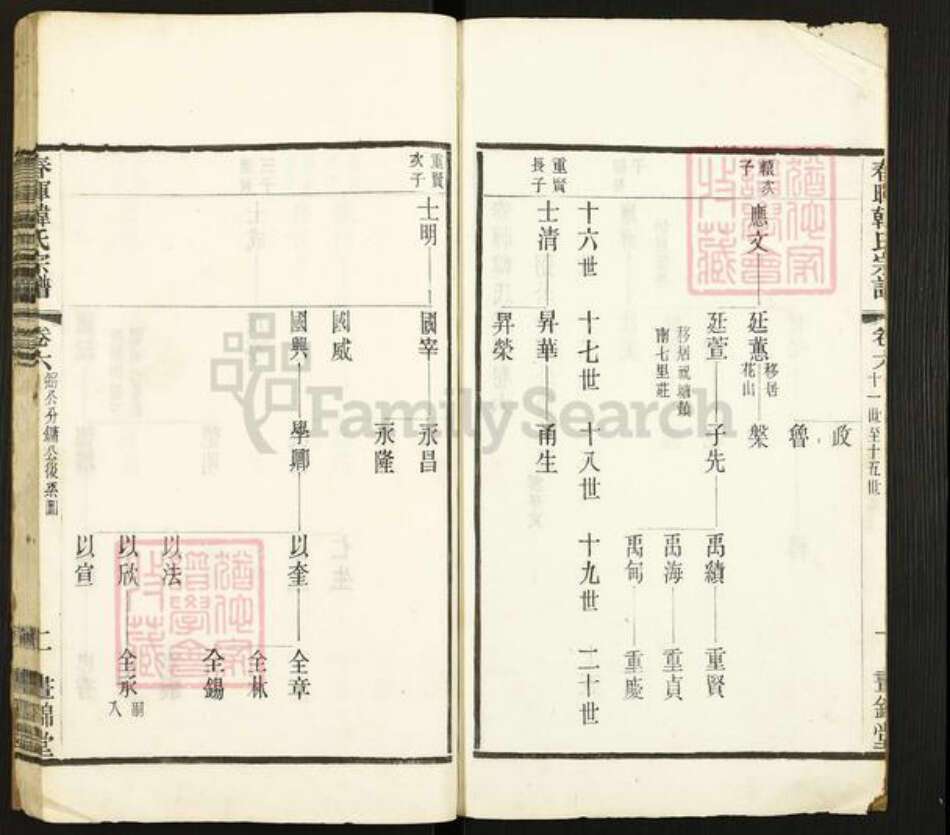 春暉韓氏宗譜
卷六
十一世至十五世
晝錦堂
政
魯
槼次子
應文
廷蕙
移居花山
槃
廷萱
移居祝塘鎮南七里莊
子先
禹績
重賢
禹海
重貞
禹甸
重慶
十六世 十七世 十八世 十九世 二十世
重賢長子
士清
昇華
甬生
昇榮
重賢次子
士明
國宰
永昌
永隆
國威
國興
學卿
以奎
全章
全林
全錫
以法
以欣
全承
嗣入
以宣
春暉韓氏宗譜
卷六
二
晝錦堂
FamilySearch